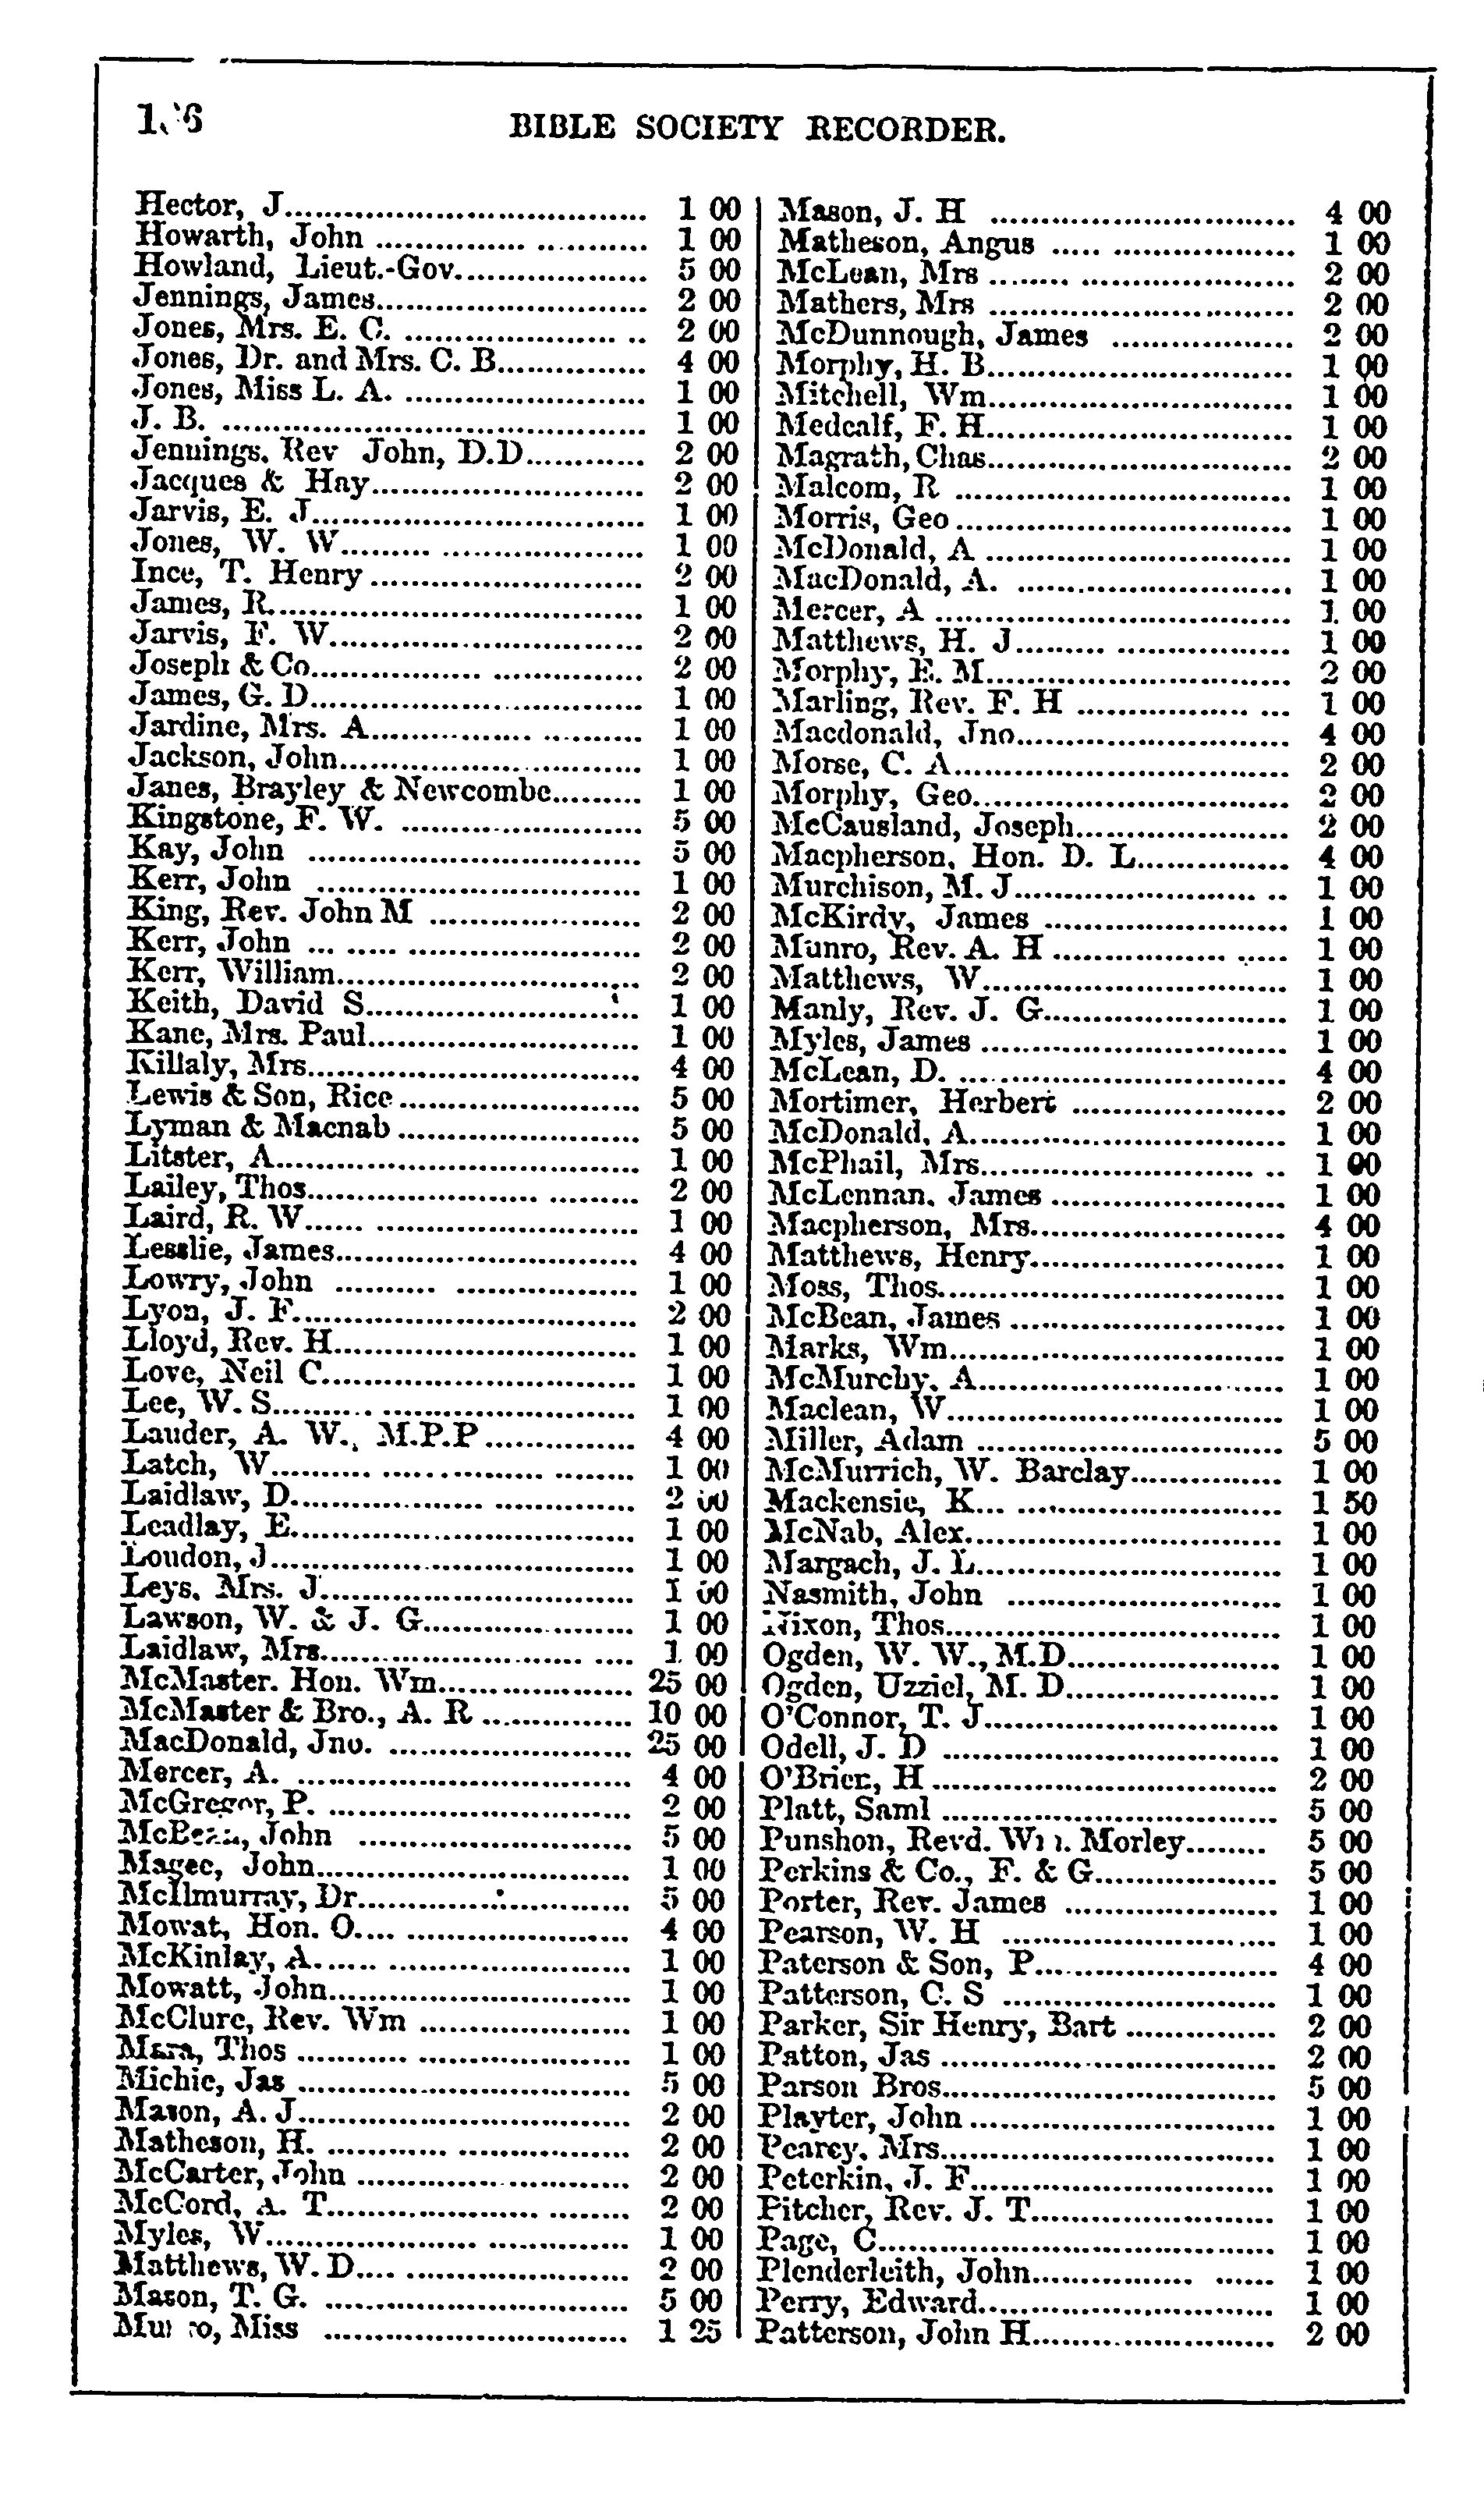 BIBLE SOCIETY RECORDER.
Hector, J. 1 00
Howarth, John 1 00
Howland, Lieut.-Gov. 5 00
Jennings, James 2 00
Jones, Mrs. E. C. 2 00
Jones, Dr. and Mrs. C. B. 4 00
Jones, Miss L. A. 1 00
J. B. 1 00
Jennings, Rev John, D.D. 2 00
Jacques & Hay 2 00
Jarvis, E. J. 1 00
Jones, W. W. 1 00
Ince, T. Henry 2 00
James, R. 1 00
Jarvis, F. W. 2 00
Joseph & Co. 2 00
James, G. D. 1 00
Jardine, Mrs. A. 1 00
Jackson, John 1 00
Janes, Brayley & Newcombe 1 00
Kingstone, F. W. 5 00
Kay, John 5 00
Kerr, John 1 00
King, Rev. John M 2 00
Kerr, John 2 00
Kerr, William 2 00
Keith, David S. 1 00
Kane, Mrs. Paul 1 00
Killaly, Mrs. 4 00
Lewis & Son, Rice 5 00
Lyman & Macnab 5 00
Litster, A. 1 00
Lailey, Thos. 2 00
Laird, R. W. 1 00
Lesslie, James 4 00
Lowry, John 1 00
Lyon, J. F. 2 00
Lloyd, Rev. H. 1 00
Love, Neil C. 1 00
Lee, W. S. 1 00
Lauder, A. W., M.P.P 4 00
Latch, W. 1 00
Laidlaw, D. 2 00
Leadlay, E. 1 00
Loudon, J. 1 00
Leys, Mrs. J. 1 00
Lawson, W. & J. G. 1 00
Laidlaw, Mrs. 1 00
McMaster. Hon. Wm. 25 00
McMaster & Bro., A. R 10 00
MacDonald, Jno. 25 00
Mercer, A. 4 00
McGregor, P. 2 00
McBean, John 5 00
Magee, John 1 00
McIlmurray, Dr. 5 00
Mowat, Hon. O. 4 00
McKinlay, A. 1 00
Mowatt, John 1 00
McClure, Rev. Wm 1 00
Mara, Thos 1 00
Michie, Jas 5 00
Mason, A. J. 2 00
Matheson, H. 2 00
McCarter, John 2 00
McCord, A. T. 2 00
Myles, W. 1 00
Matthews, W. D. 2 00
Mason, T. G. 5 00
Miss 1 25
Mason, J. H 4 00
Matheson, Angus 1 00
McLean, Mrs 2 00
Mathers, Mrs 2 00
McDunnough, James 2 00
Morphy, H. B. 1 00
Mitchell, Wm. 1 00
Medcalf, F. H. 1 00
Magrath, Chas. 2 00
Malcom, R 1 00
Morris, Geo 1 00
McDonald, A 1 00
MacDonald, A. 1 00
Mercer, A 1 00
Matthews, H. J. 1 00
Morphy, E. M. 2 00
Marling, Rev. F. H 1 00
Macdonald, Jno. 4 00
Morse, C. A. 2 00
Morphy, Geo. 2 00
McCausland, Joseph 2 00
Macpherson, Hon. D. L. 4 00
Murchison, M. J. 1 00
McKirdy, James 1 00
Munro, Rev. A. H 1 00
Matthews, W. 1 00
Manly, Rev. J. G. 1 00
Myles, James 1 00
McLean, D. 4 00
Mortimer, Herbert 2 00
McDonald, A. 1 00
McPhail, Mrs. 1 00
McLennan, James 1 00
Macpherson, Mrs. 4 00
Matthews, Henry. 1 00
Moss, Thos. 1 00
McBean, James 1 00
Marks, Wm. 1 00
McMurchy, A. 1 00
Maclean, W. 1 00
Miller, Adam 5 00
McMurrich, W. Barclay 1 00
Mackensie, K. 1 50
McNab, Alex. 1 00
Margach, J. L. 1 00
Nasmith, John 1 00
Nixon, Thos. 1 00
Ogden, W. W., M.D. 1 00
Ogden, Uzziel, M. D. 1 00
O'Connor, T. J. 1 00
Odell, J. D 1 00
O'Brien, H 2 00
Platt, Saml 5 00
Punshon, Revd. Wm. Morley 5 00
Perkins & Co., F. & G. 5 00
Porter, Rev. James 1 00
Pearson, W. H 1 00
Paterson & Son, P. 4 00
Patterson, C. S 1 00
Parker, Sir Henry, Bart 2 00
Patton, Jas 2 00
Parson Bros. 5 00
Playter, John 1 00
Pearcy, Mrs. 1 00
Peterkin, J. F. 1 00
Pitcher, Rev. J. T. 1 00
Page, C. 1 00
Plenderleith, John 1 00
Perry, Edward 1 00
Patterson, John H. 2 00